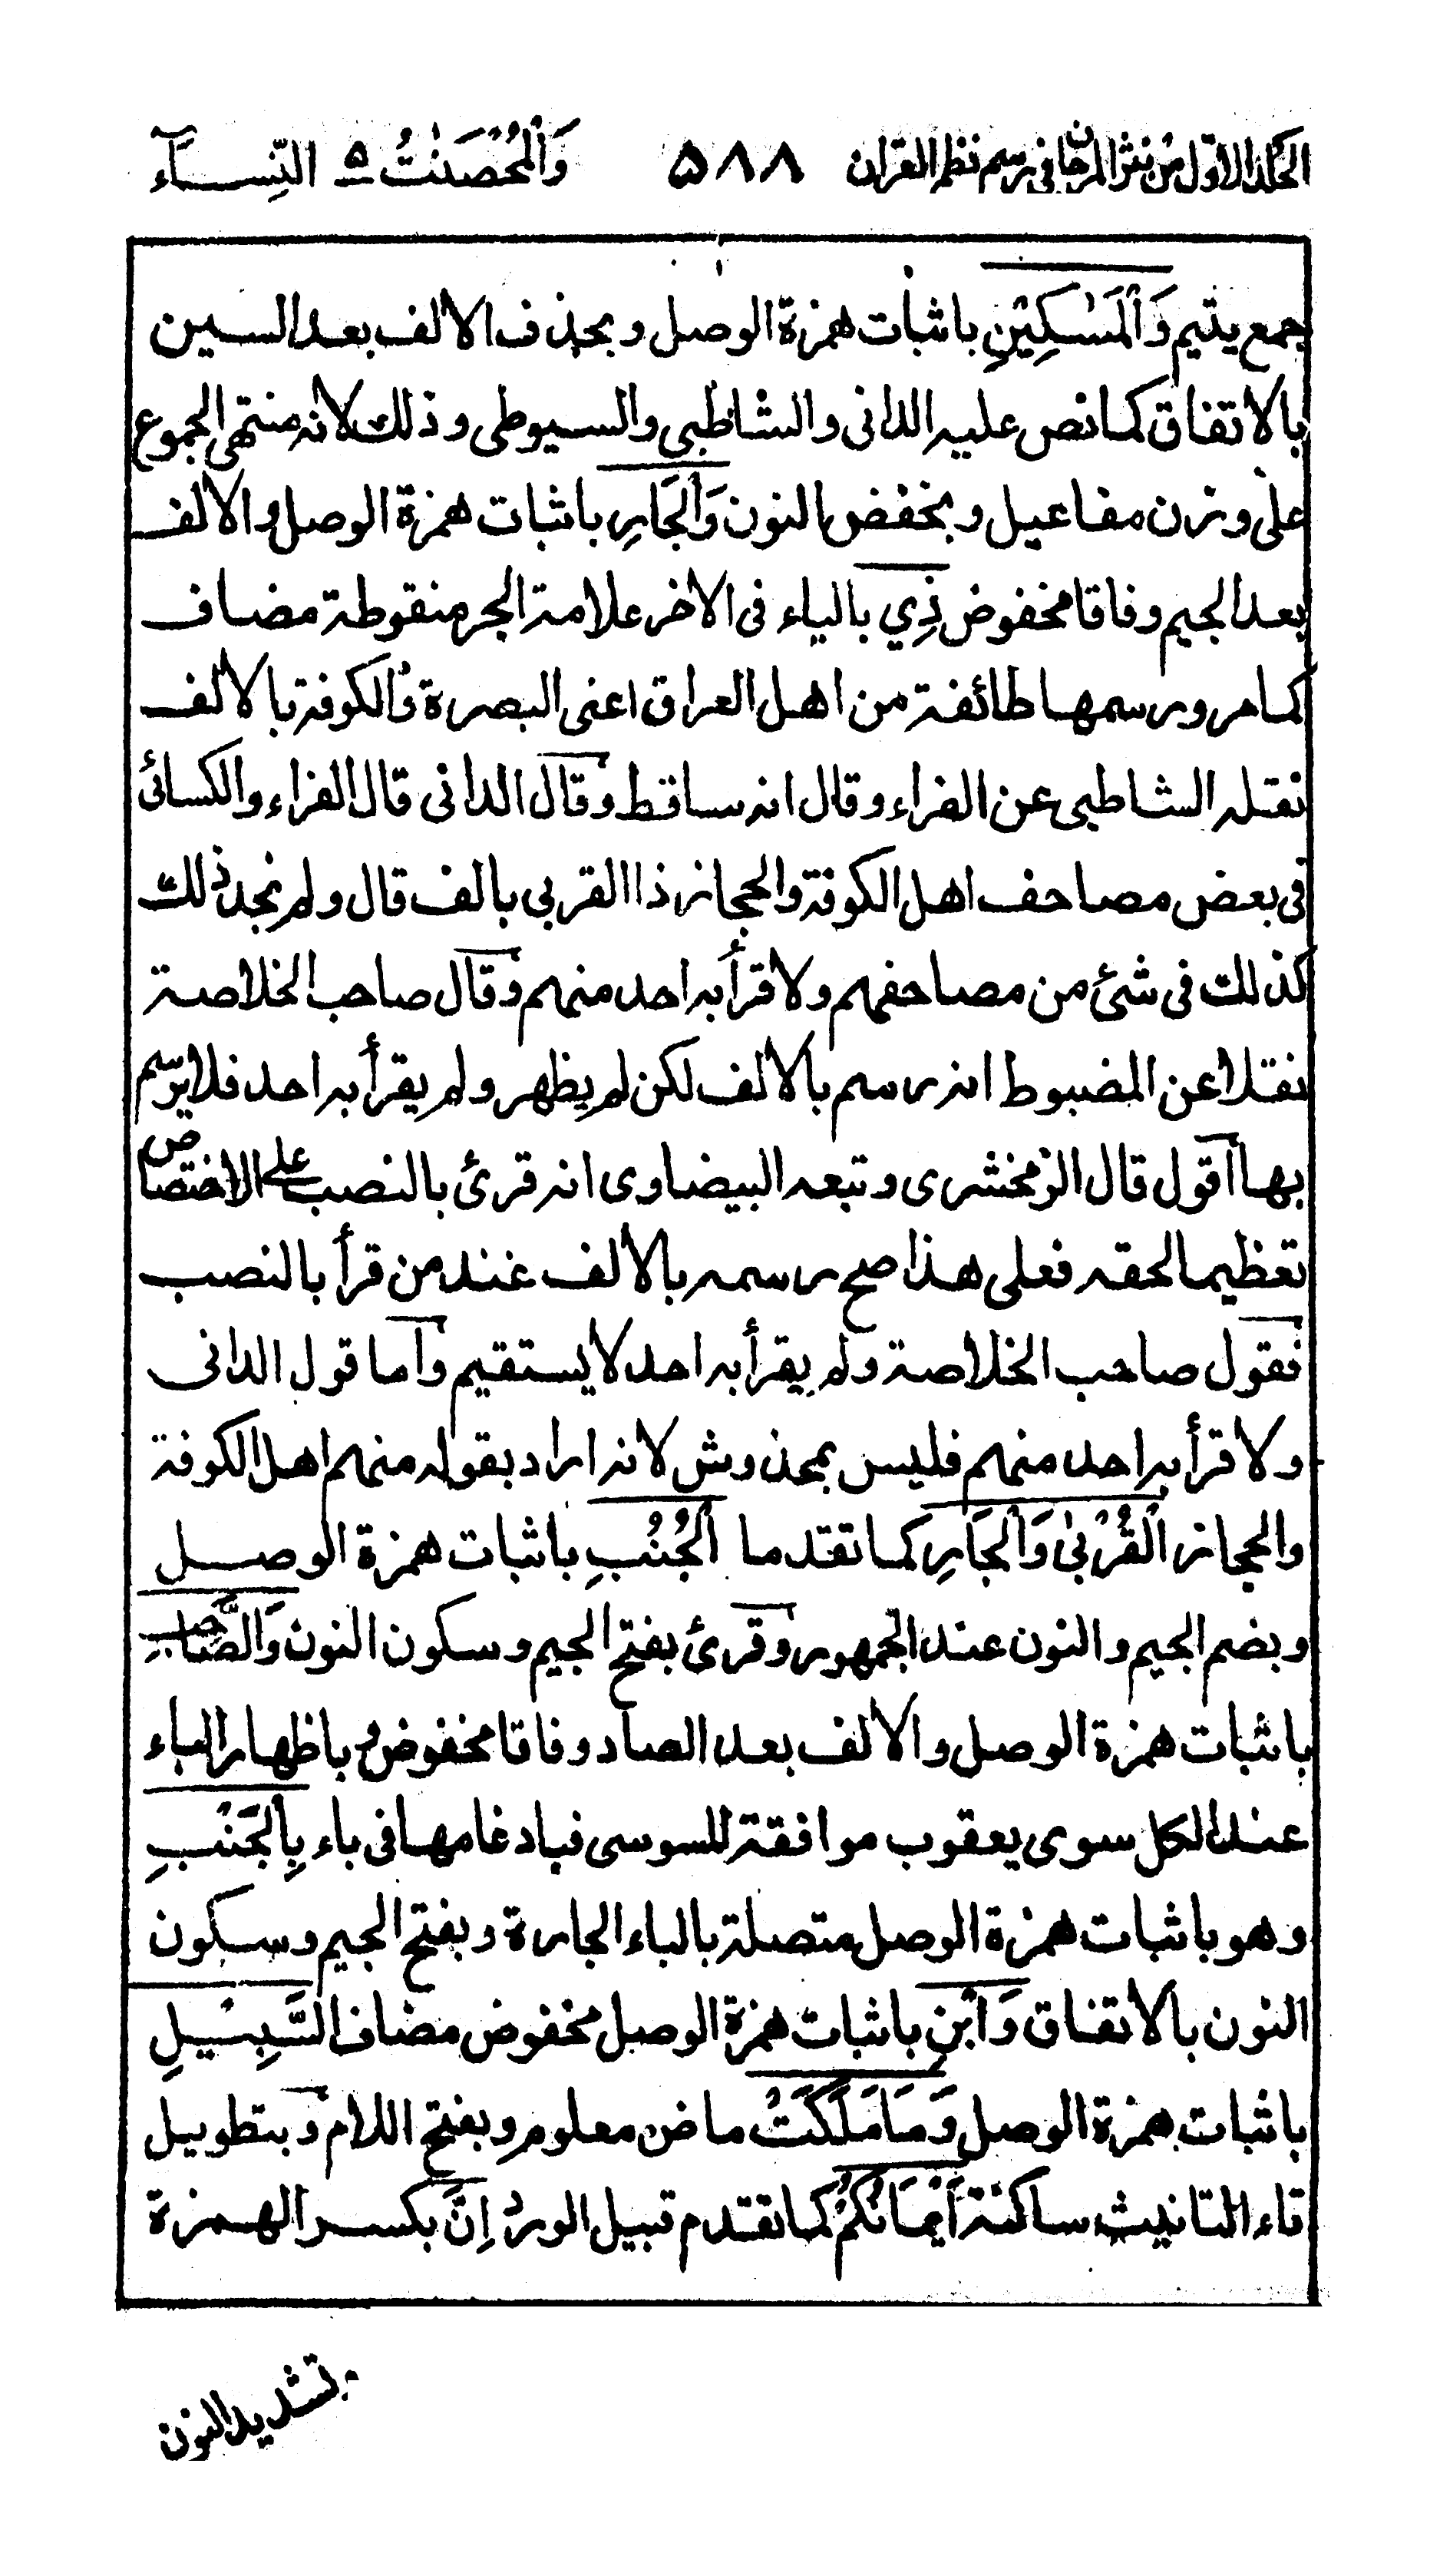 الجلد الاول من نثر المرجان في رسم نظم القران ۵۸۸ وَالْمُحْصَنٰتُ ۵ النِّسَآء
جمع يتيم وَالْمَسٰكِيْنِ باثبات همزة الوصل وبحذف الالف بعد السين
بالاتفاق كما نص عليه الدانى والشاطبى والسيوطى وذلك لانه منتهى الجموع
على وزن مفاعيل وبخفض النون وَالْجَارِ باثبات همزة الوصل والالف
بعد الجيم وفاقا مخفوض ذِي بالياء فى الاخر علامة الجر منقوطة مضاف
كما مر ورسمها طائفة من اهل العراق اعنى البصرة والكوفة بالالف
نقله الشاطبى عن الفراء وقال انه ساقط وقال الدانى قال الفراء والكسائى
فى بعض مصاحف اهل الكوفة والحجاز ذا القربى بالف قال ولم نجد ذلك
كذلك فى شئ من مصاحفهم ولا قرأ به احد منهم وقال صاحب الخلاصة
نقلا عن المضبوط انه رسم بالالف لكن لم يظهر ولم يقرأ به احد فلا يرسم
بها اقول قال الزمخشرى وتبعه البيضاوى انه قرئ بالنصب على الاختصاص
تعظيما لحقه فعلى هذا صح رسمه بالالف عند من قرأ بالنصب
فقول صاحب الخلاصة ولم يقرأ به احد لا يستقيم واما قول الدانى
ولا قرأ به احد منهم فليس بمخدوش لانه اراد بقوله منهم اهل الكوفة
والحجاز الْقُرْبٰى وَالْجَارِ كما تقدما الْجُنُبِ باثبات همزة الوصل
وبضم الجيم والنون عند الجمهور وقرئ بفتح الجيم وسكون النون وَالصَّاحِبِ
باثبات همزة الوصل والالف بعد الصاد وفاقا مخفوض وباظهار الباء
عند الكل سوى يعقوب موافقة للسوسى فبادغامها فى باء بِالْجَنْبِ
وهو باثبات همزة الوصل متصلة بالباء الجارة وبفتح الجيم وسكون
النون بالاتفاق وَابْنِ باثبات همزة الوصل مخفوض مضاف السَّبِيْلِ
باثبات همزة الوصل وَمَا مَلَكَتْ ماض معلوم وبفتح اللام وبتطويل
تاء التانيث ساكنة اَيْمَانُكُمْ كما تقدم قبيل الورد اِنَّ بكسر الهمزة
وتشديد النون